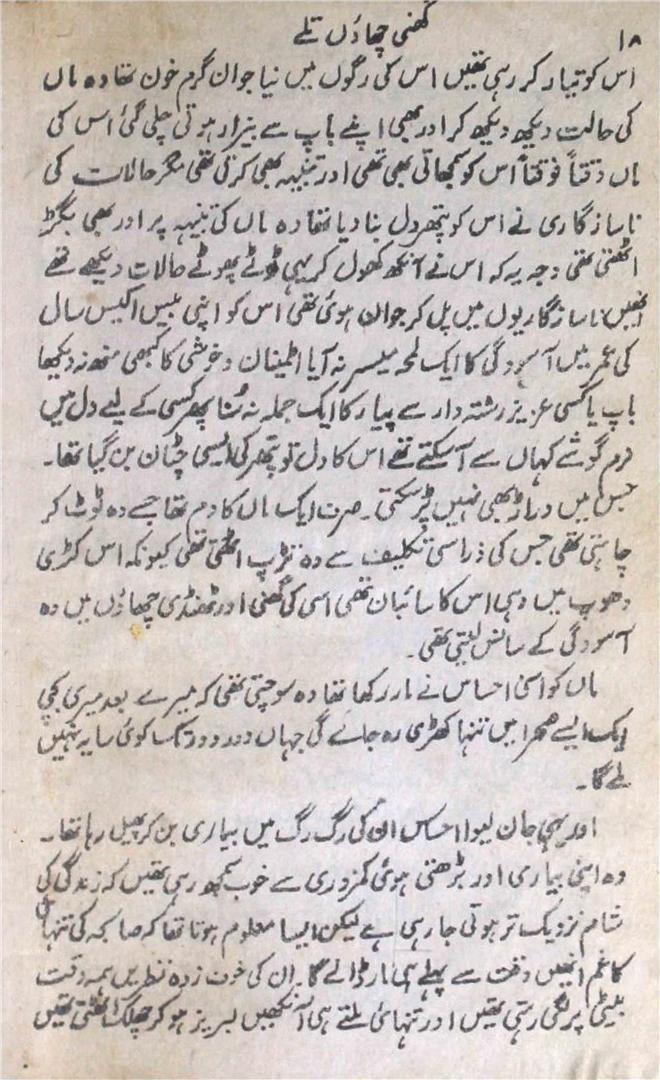 گھنی چھاؤں تلے
۱۸
اس کو تیار کر رہی تھیں اس کی رگوں میں نیا جوان گرم خون تھا وہ ماں
کی حالت دیکھ دیکھ کر اور بھی اپنے باپ سے بیزار ہوتی چلی گئی اس کی
ماں وقتاً فوقتاً اس کو سمجھاتی بھی تھی اور تنبیہہ بھی کرتی تھی مگر حالات کی
ناسازگاری نے اس کو پتھر دل بنا دیا تھا وہ ماں کی تنبیہہ پر اور بھی بگڑ
اٹھتی تھی وجہ یہ کہ اس نے آنکھ کھول کر یہی ٹوٹے پھوٹے حالات دیکھے تھے
انھیں ناسازگاریوں میں پل کر جوان ہوئی تھی اس کو اپنی بیس اکیس سال
کی عمر میں آسودگی کا ایک لمحہ میسر نہ آیا اطمینان و خوشی کا کبھی منھ نہ دیکھا
باپ یا کسی عزیز رشتہ دار سے پیار کا ایک جملہ نہ سُنا پھر کسی کے لیے دل میں
نرم گوشے کہاں سے آ سکتے تھے اس کا دل تو پتھر کی ایسی چٹان بن گیا تھا۔
جس میں دراڑ بھی نہیں پڑ سکتی۔ صرف ایک ماں کا دم تھا جسے وہ ٹوٹ کر
چاہتی تھی جس کی ذرا سی تکلیف سے وہ تڑپ اٹھتی تھی کیونکہ اس کڑی
دھوپ میں وہی اس کا سائبان تھی اسی کی گھنی اور ٹھنڈی چھاؤں میں وہ
آسودگی کے سانس لیتی تھی۔
ماں کو اسی احساس نے مار رکھا تھا وہ سوچتی تھی کہ میرے بعد میری بچی
ایک ایسے صحرا میں تنہا کھڑی رہ جائے گی جہاں دور دور تک کوئی سایہ نہیں
ملے گا۔
اور یہی جان لیوا احساس ان کی رگ رگ میں بیماری بن کر پھیل رہا تھا۔
وہ اپنی بیماری اور بڑھتی ہوئی کمزوری سے خوب سمجھ رہی تھیں کہ زندگی کی
شام نزدیک تر ہوتی جا رہی ہے لیکن ایسا معلوم ہوتا تھا کہ صاجہ کی تنہائی
کا غم انھیں وقت سے پہلے ہی مار ڈالے گا۔ ان کی خوف زدہ نظریں ہمہ وقت
بیٹی پر لگی رہتی تھیں اور تنہائی ملتے ہی آنکھیں لبریز ہو کر چھلک اٹھتی تھیں